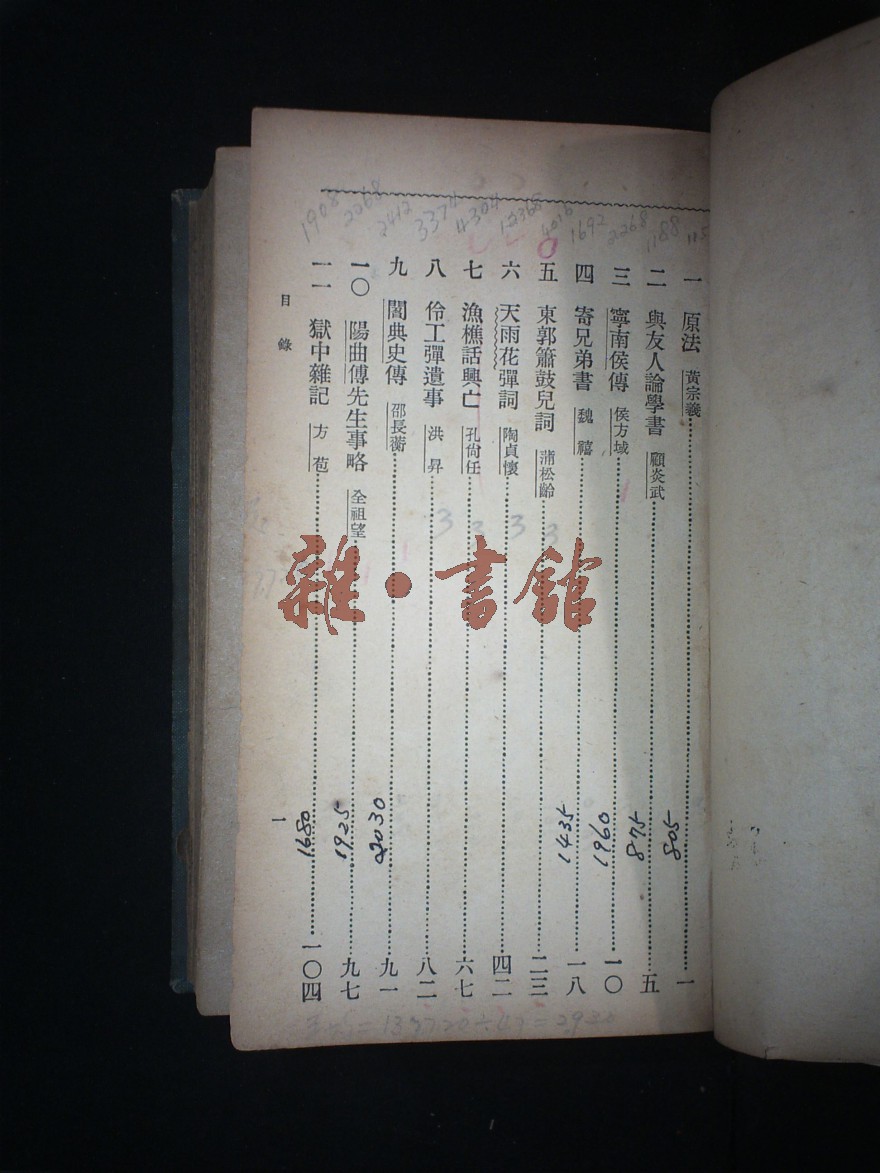 一 原法 黃宗羲 一
二 與友人論學書 顧炎武 五
三 寧南侯傳 侯方域 一〇
四 寄兄弟書 魏禧 一八
五 東郭簫鼓兒詞 蒲松齡 二三
六 天雨花彈詞 陶貞懷 四二
七 漁樵話興亡 孔尙任 六七
八 伶工彈遺事 洪昇 八二
九 閻典史傳 邵長蘅 九一
一〇 陽曲傅先生事略 全祖望 九七
一一 獄中雜記 方苞 一〇四
目錄 1
1188
2268
1692
4016
12368
4304
3374
2412
2268
1908
805
875
1960
1435
2030
1925
1680
3
3
3
3
雜·書館